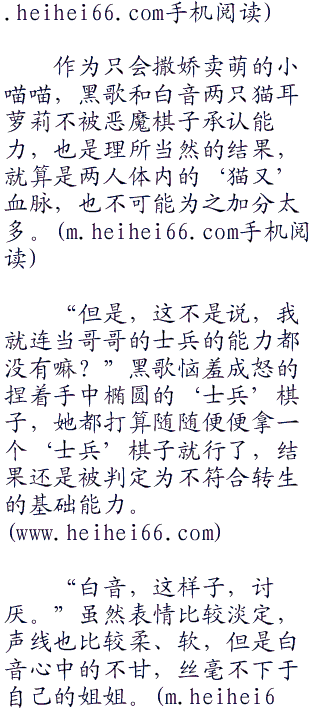 .heihei66.com手机阅读)
作为只会撒娇卖萌的小
喵喵，黑歌和白音两只猫耳
萝莉不被恶魔棋子承认能
力，也是理所当然的结果，
就算是两人体内的‘猫又’
血脉，也不可能为之加分太
多。(m.heihei66.com手机阅
读)
“但是，这不是说，我
就连当哥哥的士兵的能力都
没有嘛？”黑歌恼羞成怒的
捏着手中椭圆的‘士兵’棋
子，她都打算随随便便拿一
个‘士兵’棋子就行了，结
果还是被判定为不符合转生
的基础能力。
(www.heihei66.com)
“白音，这样子，讨
厌。”虽然表情比较淡定，
声线也比较柔、软，但是白
音心中的不甘，丝毫不下于
自己的姐姐。(m.heihei6